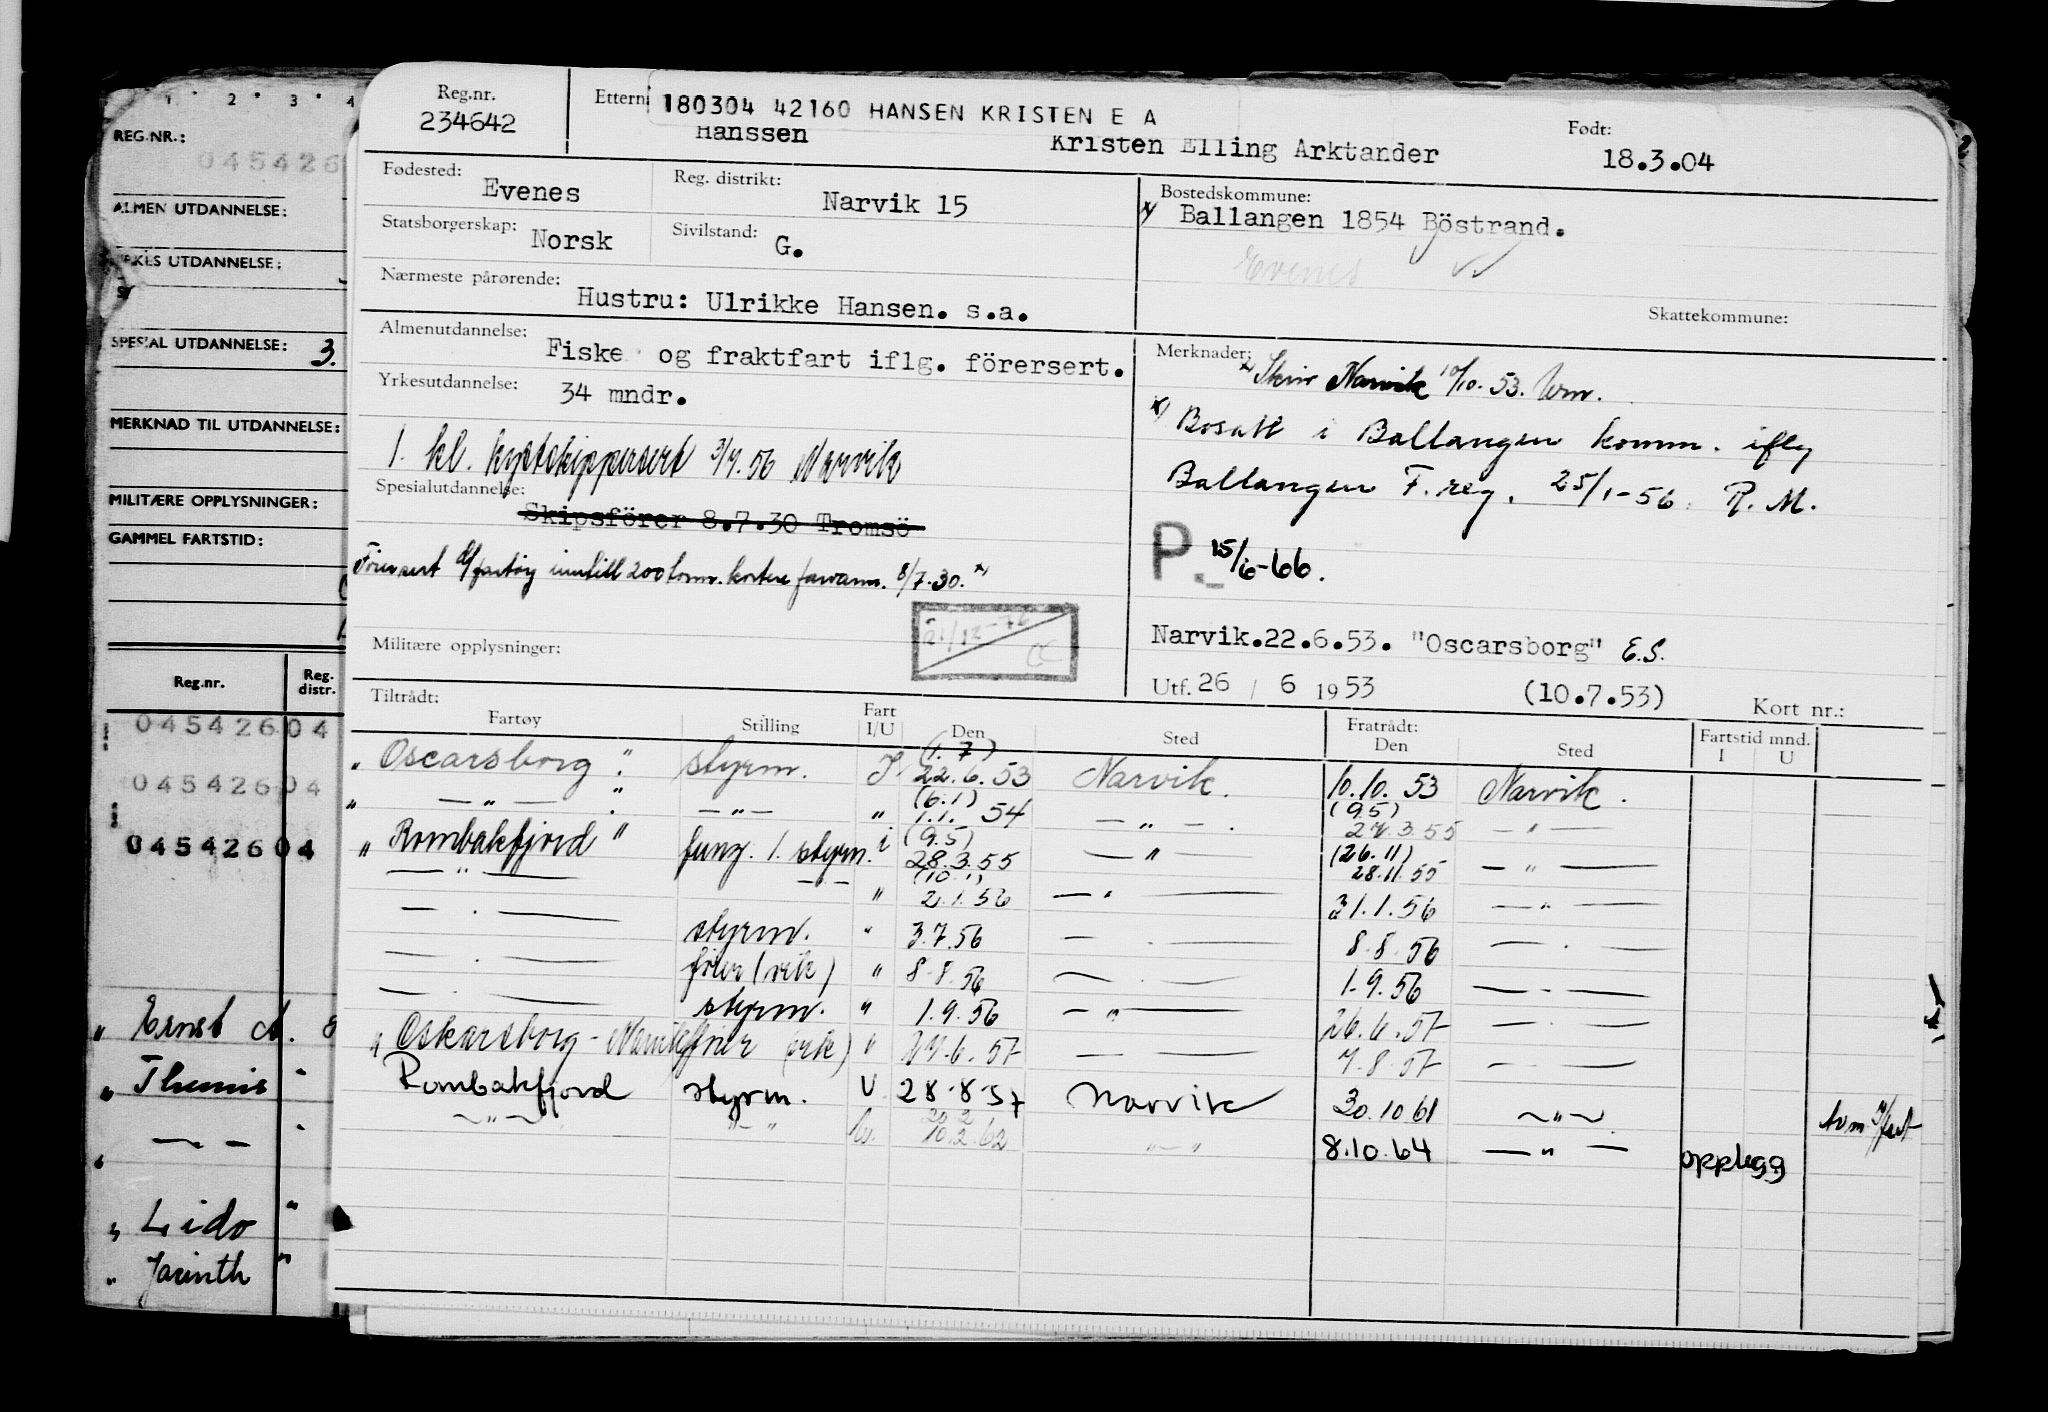 1 2 3 4
REG.NR.:
045426
ALMEN UTDANNELSE:
UTDANNELSE:
SPESIAL UTDANNELSE: 3.
MERKNAD TIL UTDANNELSE:
MILITÆRE OPPLYSNINGER:
GAMMEL FARTSTID:
Reg.nr. Reg. distr.
04542604
04542604
04542604
" Ernst A.
" Themis "
— " —
" Lido "
" Jacinth "
Reg.nr.
234642
Ettern
180304 42160 HANSEN KRISTEN E A
Hanssen Kristen Elling Arktander
Født:
18.3.04
Fødested: Evenes
Reg. distrikt: Narvik 15
Bostedskommune:
x) Ballangen 1854 Böstrand.
Evenes
Statsborgerskap: Norsk
Sivilstand: G.
Nærmeste pårørende: Hustru: Ulrikke Hansen. s.a.
Skattekommune:
Almenutdannelse: Fiske og fraktfart iflg. förersert.
Yrkesutdannelse: 34 mndr.
1. kl. kystskippersert 3/7.56 Narvik
Spesialutdannelse:
Skipsförer 8.7.30 Tromsö
fartøy inntill 200 tonn. kortere farvann. 8/7.30. x)
Militære opplysninger:
21/12-76
Merknader:
x) Skriv Narvik 10/10.53.
x) Bosatt i Ballangen komm. iflg
Ballangen F.reg. 25/1-56. R.M.
P. 15/6-66.
Narvik.22.6.53. "Oscarsborg" E.S.
Utf. 26 / 6 1953 (10.7.53) Kort nr.:
Tiltrådt: Fratrådt:
Fartøy Stilling Fart I/U Den Sted Den Sted Fartstid mnd. I U
(1.7)
"Oscarsborg" styrm. I 22.6.53 Narvik. 10.10.53 Narvik.
(6.1) (9.5)
" — " — " — " — " 1.1.54 — " — . 27.3.55 — " —
(9.5) (26.11)
"Rombakfjord" fung. 1. styrm. i 28.3.55 — " — 28.11.55 — " —
(10.1)
— " — — " — " 2.1.56 — " — 31.1.56 — " —
— " — styrm. " 3.7.56 — " — 8.8.56 — " —
— " — fører (vik) " 8.8.56 — " — 1.9.56 — " —
— " — styrm. " 1.9.56 — " — 26.6.57 — " —
" Oskarsborg - Narvik fører (vik) " 27.6.57 — " — 7.8.57 — " —
Rombakfjord styrm. U 28.8.57 Narvik 30.10.61 — " —
20.2
— " — " — " 10.2.62 — " — 8.10.64 — " — opplegg